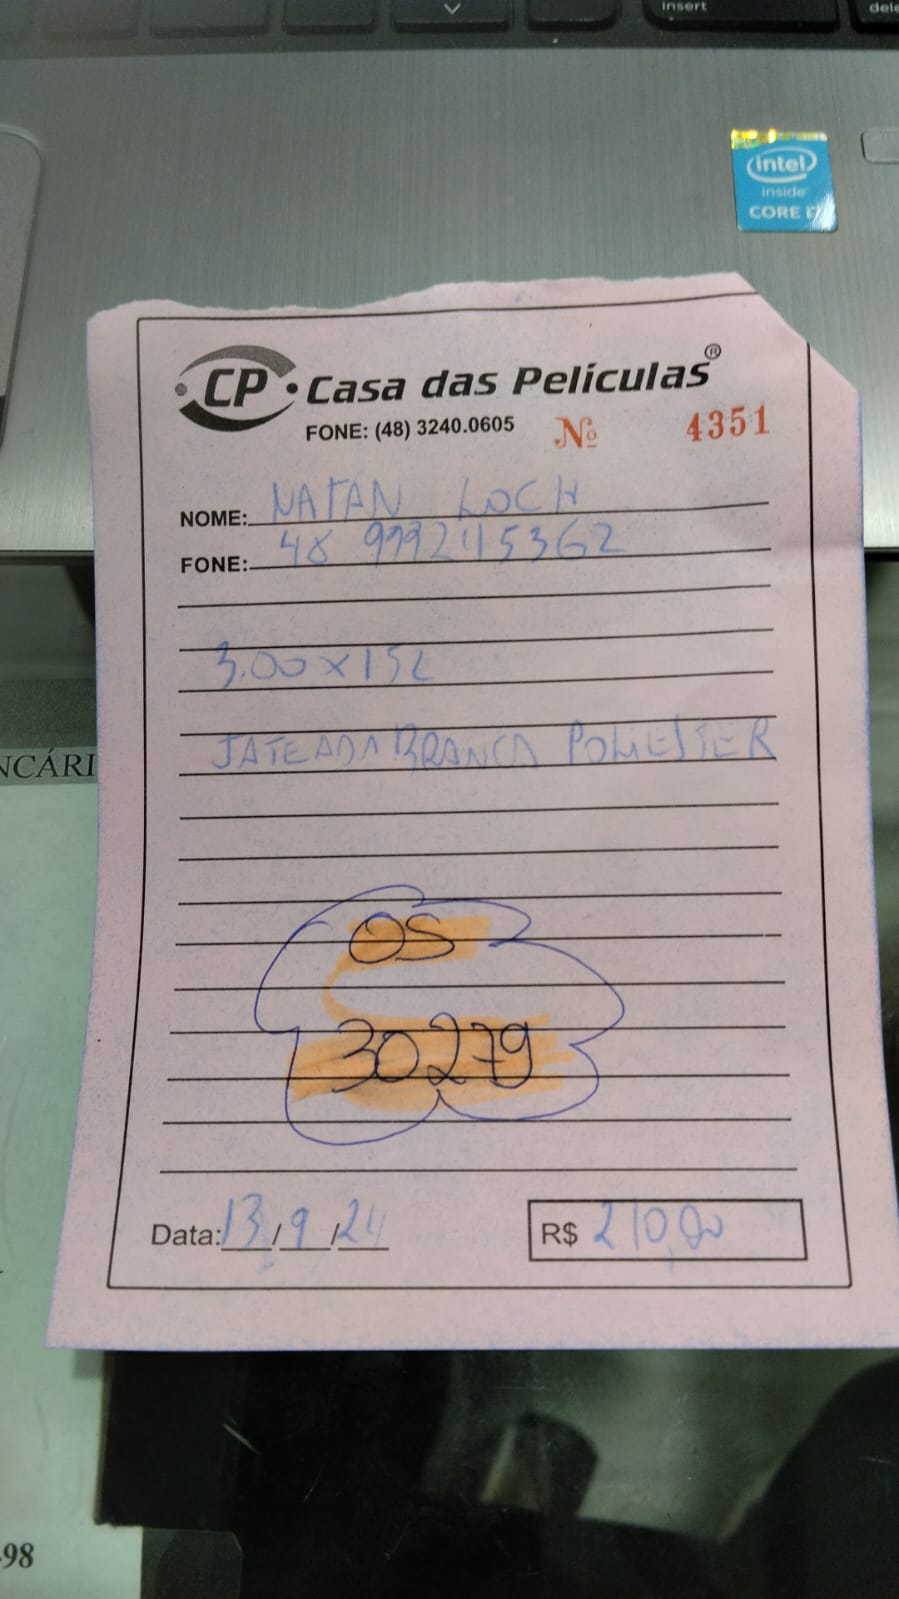 insert
dele
intel
inside
CORE i7
CP Casa das Películas®
FONE: (48) 3240.0605
Nº 4351
NOME: NATAN LOCH
FONE: 48 999245362
3.00 x 152
JATEADA BRANCA POLIESTER
NCÁRI
OS
30279
Data: 13/9/24
R$ 210,00
-98